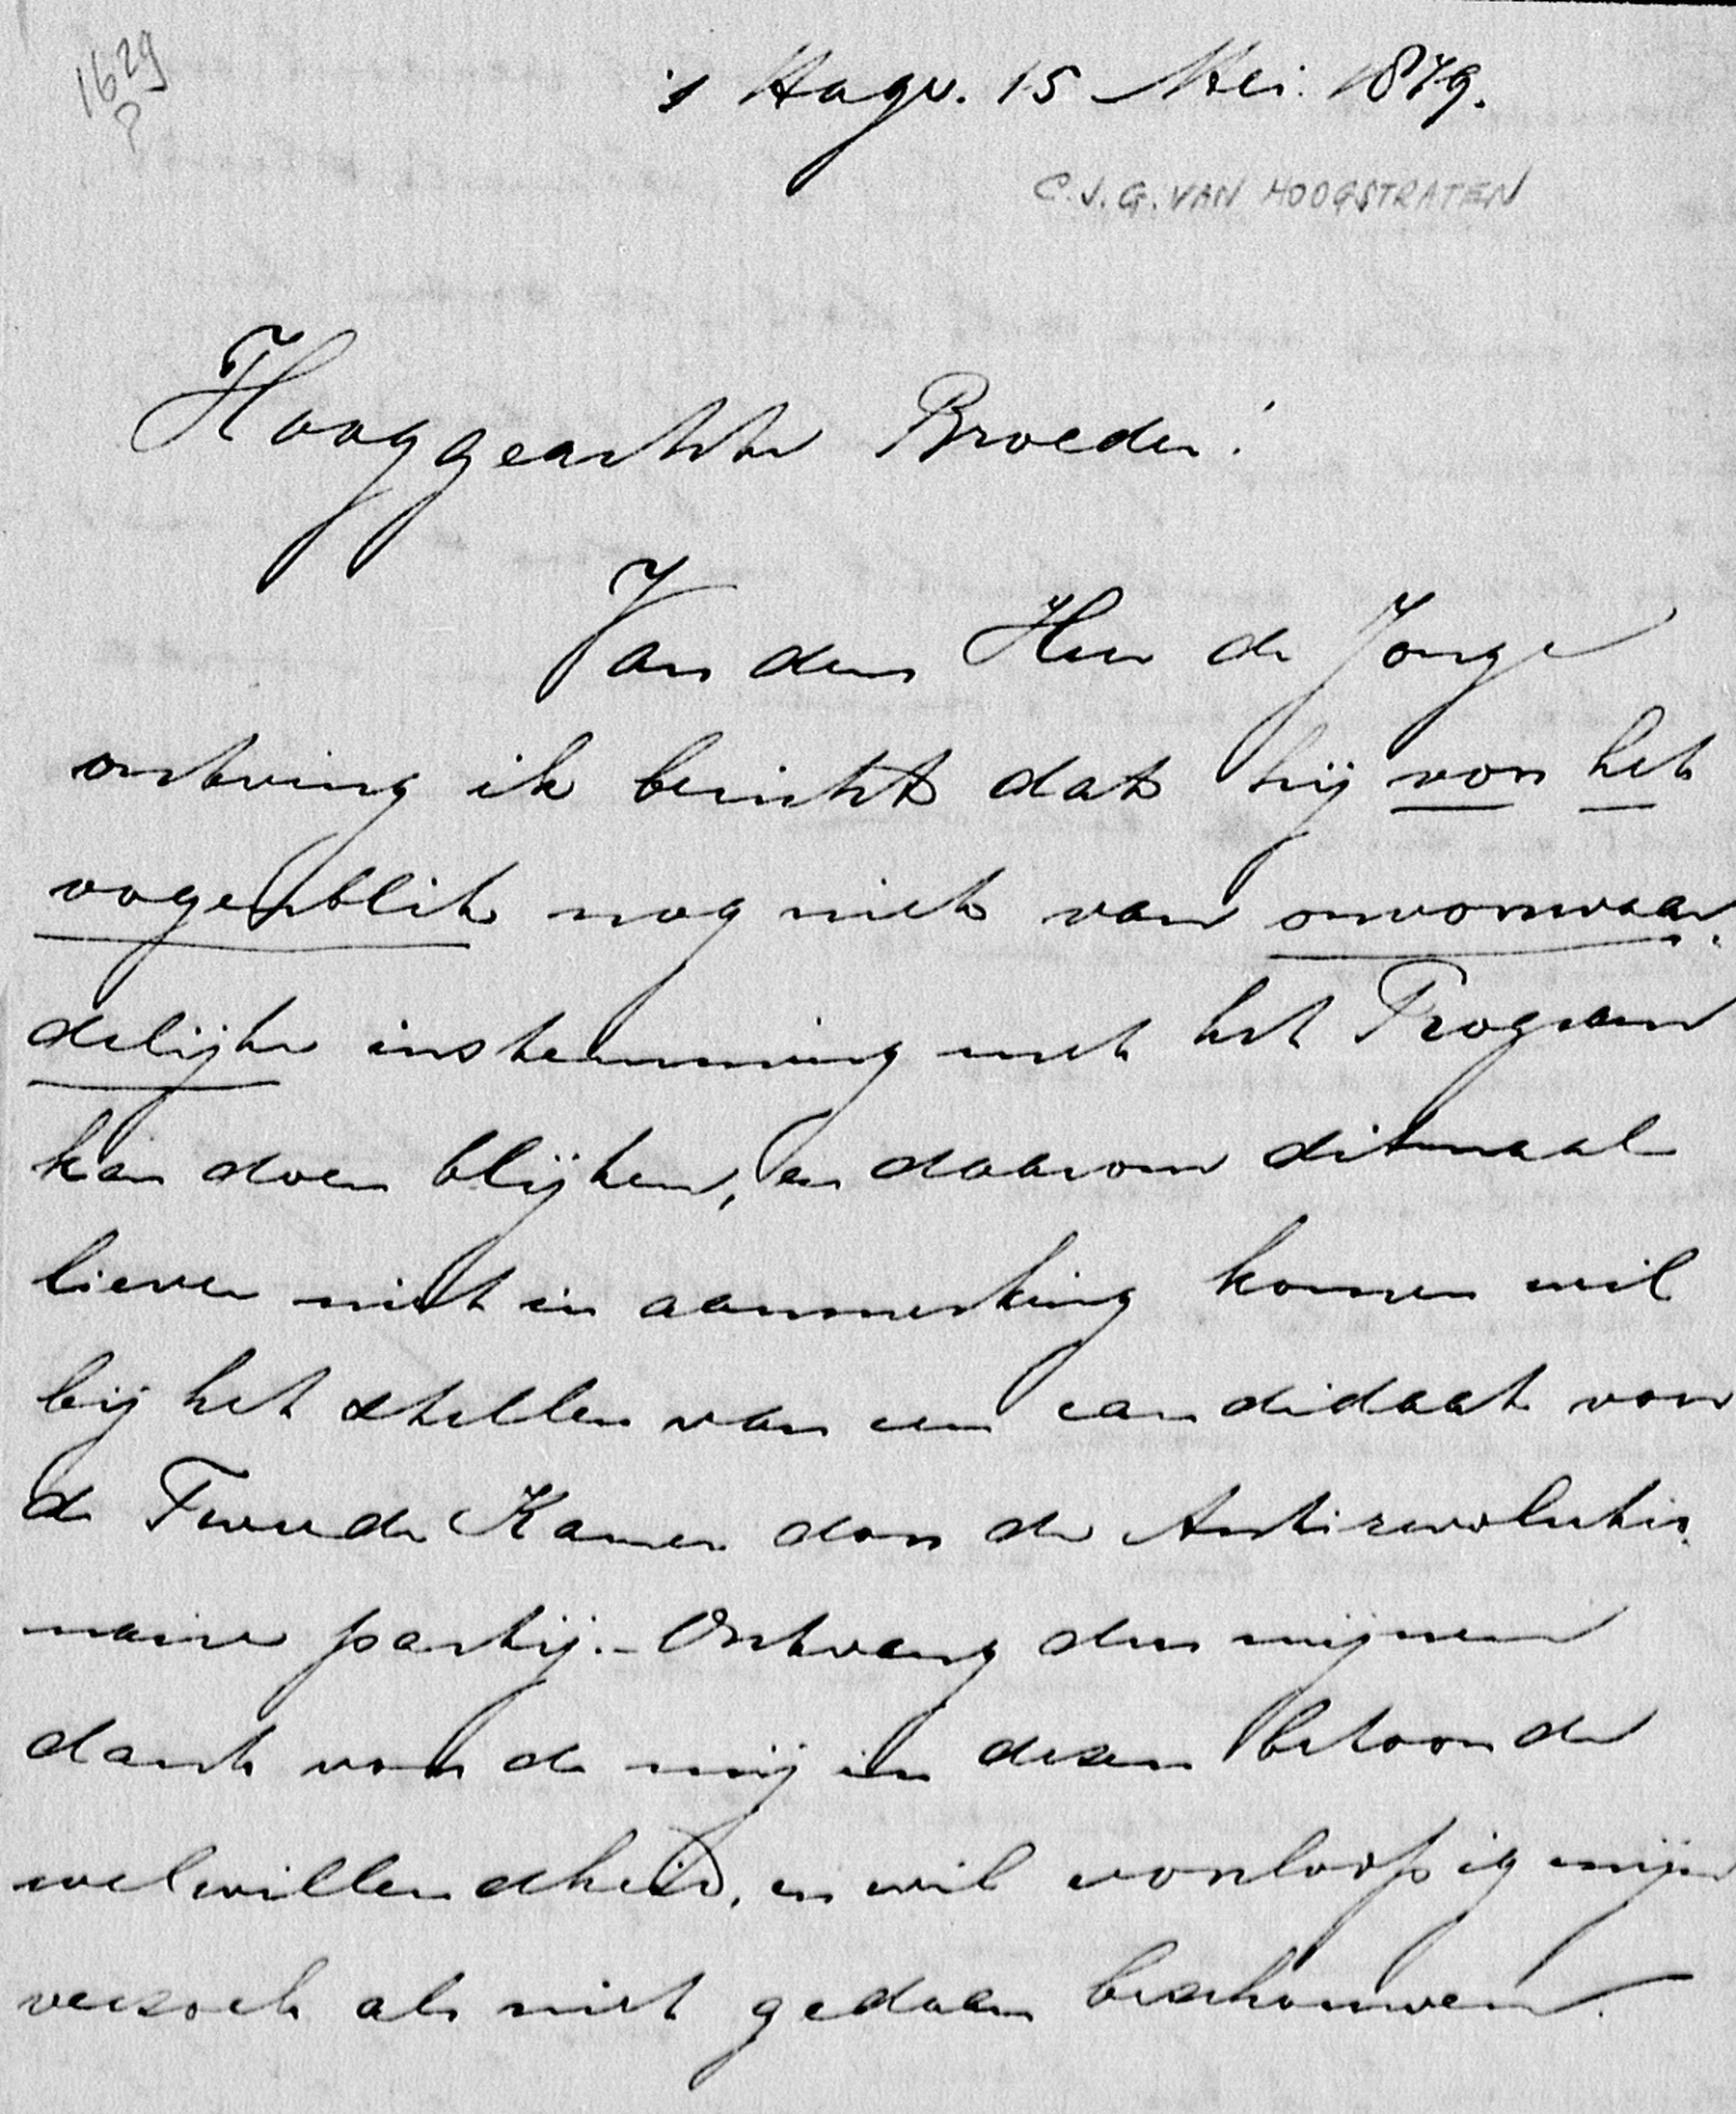 1629
?
's Hage. 15 Mei. 1879.
C.J.G. VAN HOOGSTRATEN
Hooggeachte Broeder!
Van den Heer de Jonge
ontving ik bericht dat hij voor het
oogenblik nog niet van onvoorwaar-
delijke instemming met het Program
kan doen blijken, en daarom ditmaal
liever niet in aanmerking komen wil
bij het stellen van een candidaat voor
de Tweede Kamer door de Antirevolutio-
naire partij. - Ontvang dus mijnen
dank voor de mij in dezen betoonde
welwillendheid, en wil voorloopig mijn
verzoek als niet gedaan beschouwen.